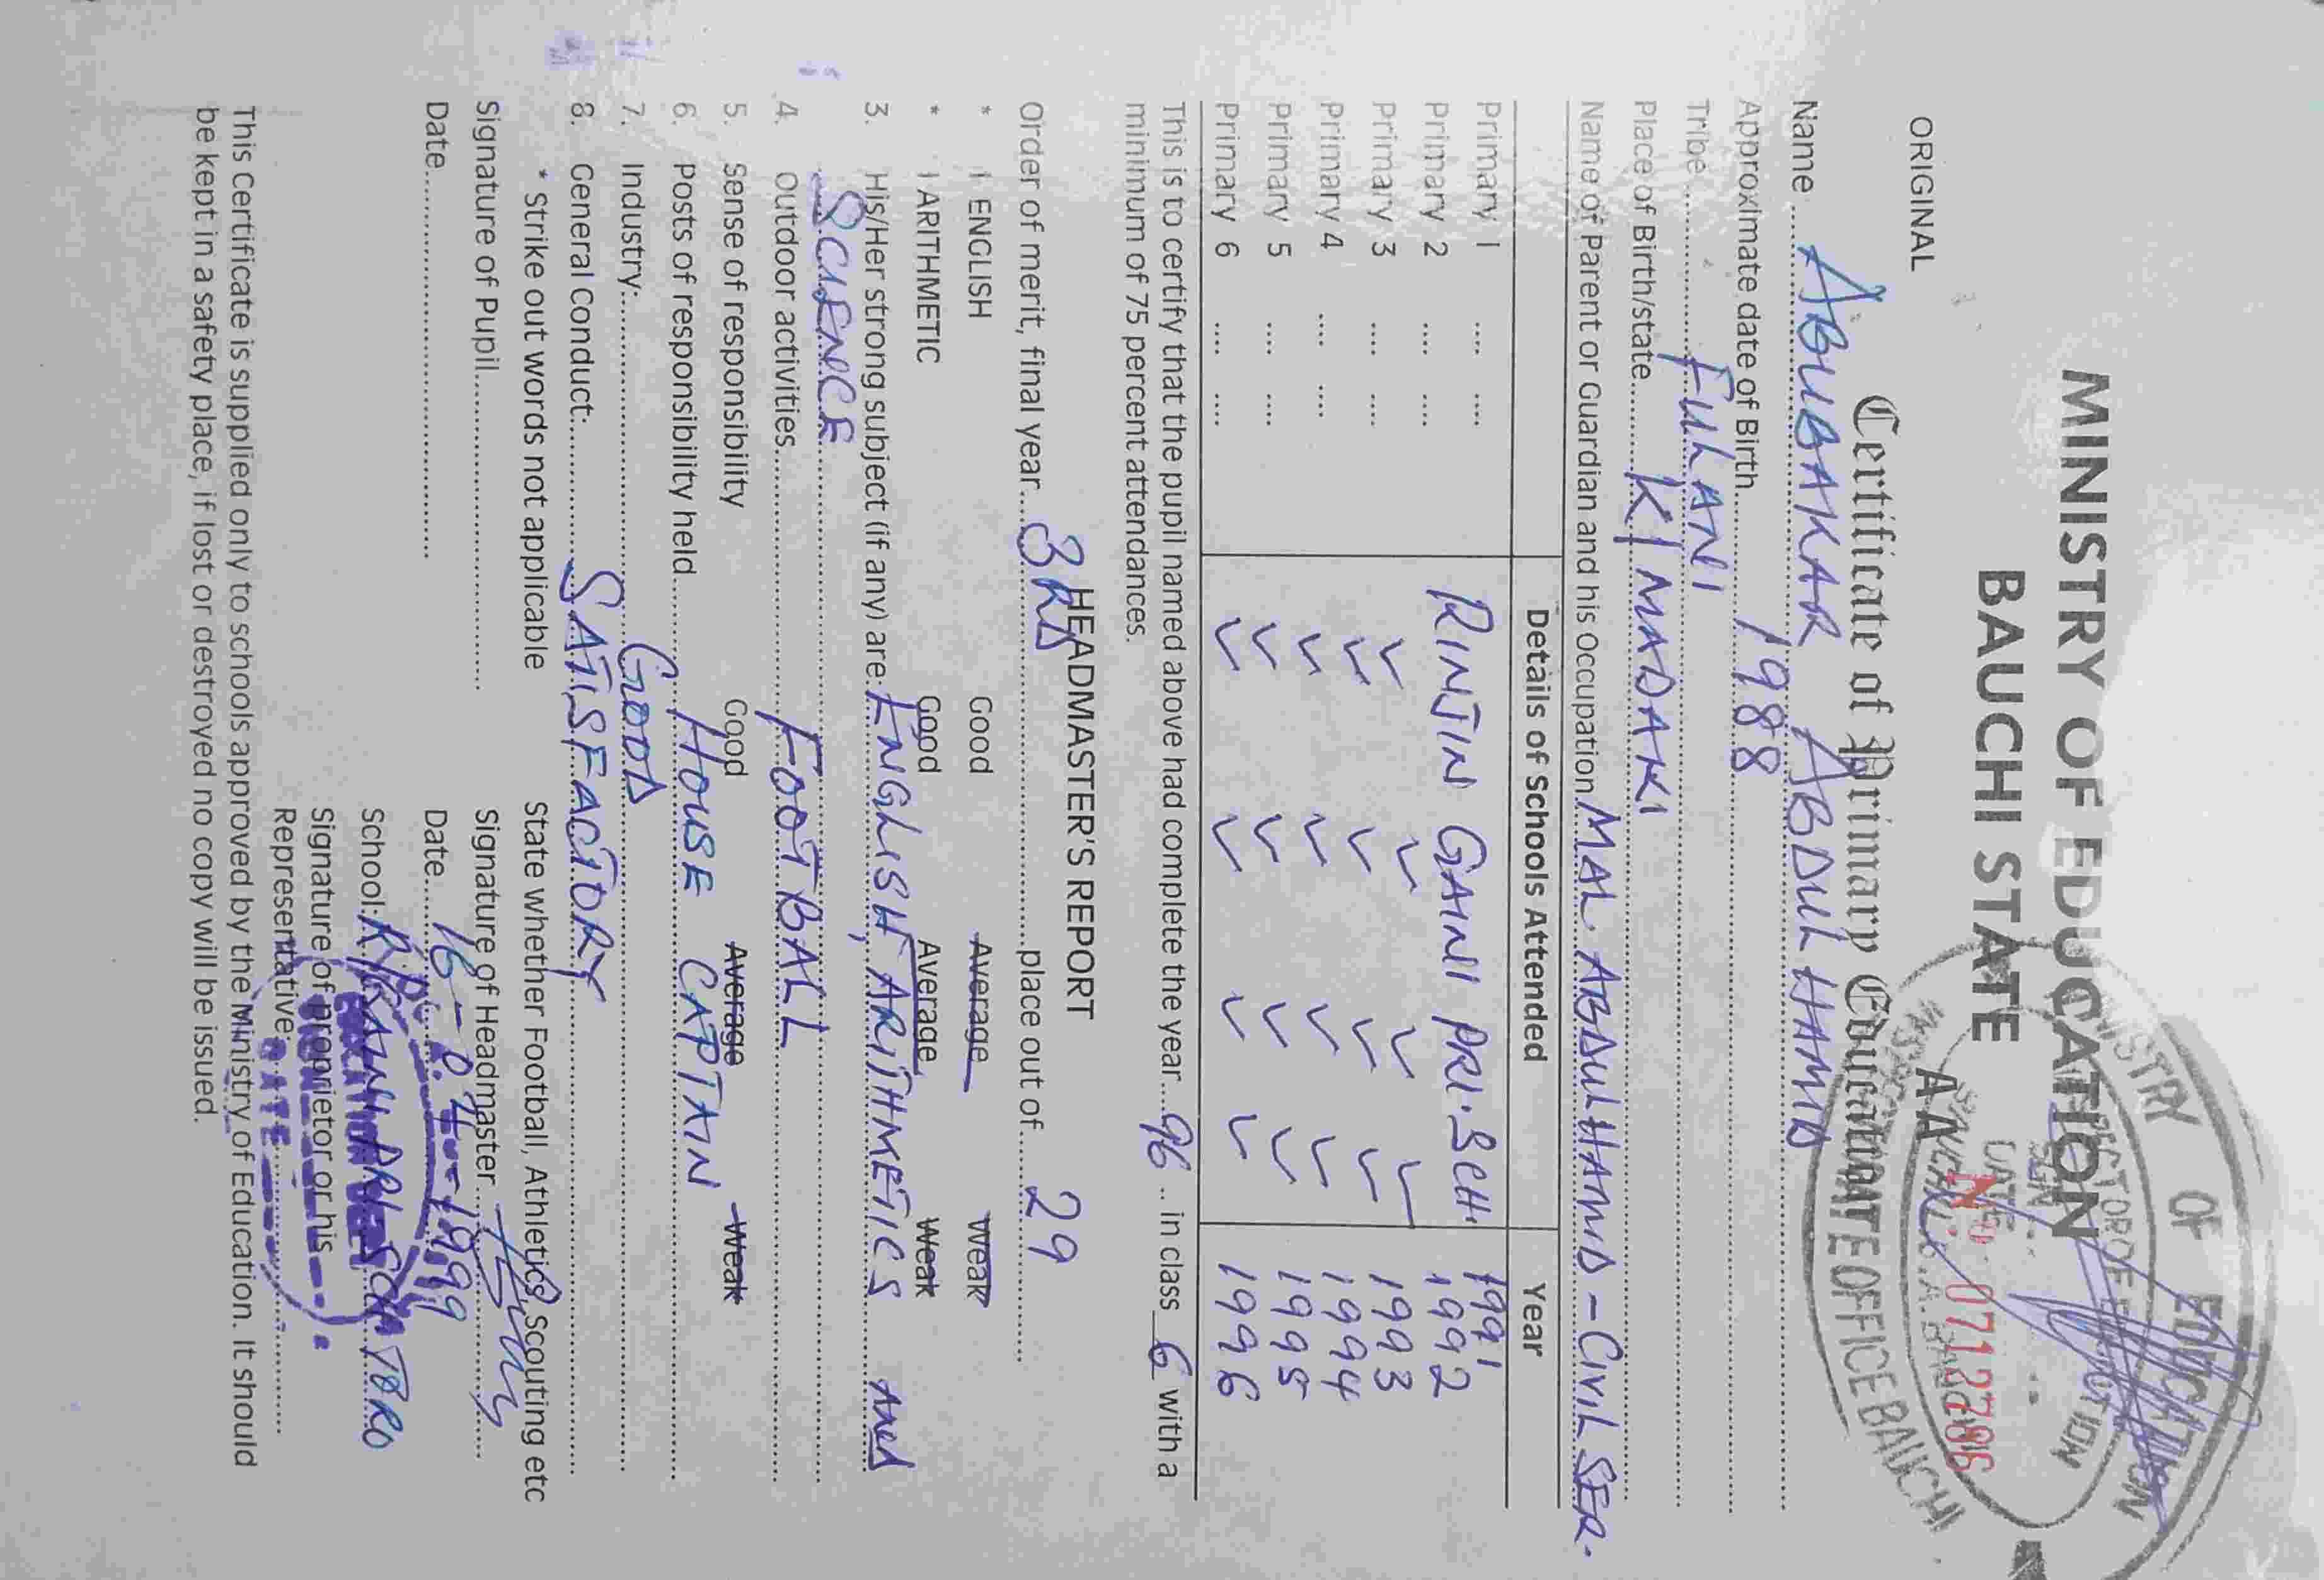 MINISTRY OF EDUCATION
BAUCHI STATE
ORIGINAL
AA
No 0712786
Certificate of Primary Education
Name ABUBAKAR ABDUL HAMID
Approximate date of Birth 1988
Tribe FULANI
Place of Birth/state K/MADAKI
Name of Parent or Guardian and his Occupation MAL. ABDULHAMID - CIVIL SER.
Details of Schools Attended Year
Primary 1 RINJIN GAINI PRI. SCH. 1991
Primary 2 1992
Primary 3 1993
Primary 4 1994
Primary 5 1995
Primary 6 1996
This is to certify that the pupil named above had complete the year 96 in class 6 with a
minimum of 75 percent attendances.
HEADMASTER'S REPORT
Order of merit, final year 3RD place out of 29
* I ENGLISH Good Average Weak
* I ARITHMETIC Good Average Weak
3. His/Her strong subject (if any) are: ENGLISH, ARITHMETICS and
SCIENCE
4. Outdoor activities FOOTBALL
5. Sense of responsibility Good Average Weak
6. Posts of responsibility held HOUSE CAPTAIN
7. Industry: GOOD
8. General conduct: SATISFACTORY
* Strike out words not applicable State whether Football, Athletics, Scouting etc
Signature of Pupil Signature of Headmaster
Date Date 1999
School: PRI. SCH TORO
Signature of proprietor or his
Representative
This Certificate is supplied only to schools approved by the Ministry of Education. It should
be kept in a safety place, if lost or destroyed no copy will be issued.
MINISTRY OF EDUCATION
OFFICE BAUCHI
SIGN
DATE